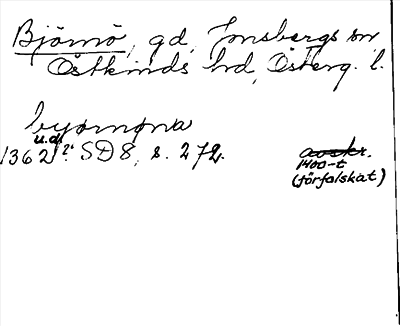 Björnö, gd, Jonsbergs sn
Östkinds hd, Österg. l.
byornöna
u.d.
1362 2/2 SD 8, s. 272. avskr.
1400-t
(förfalskat)